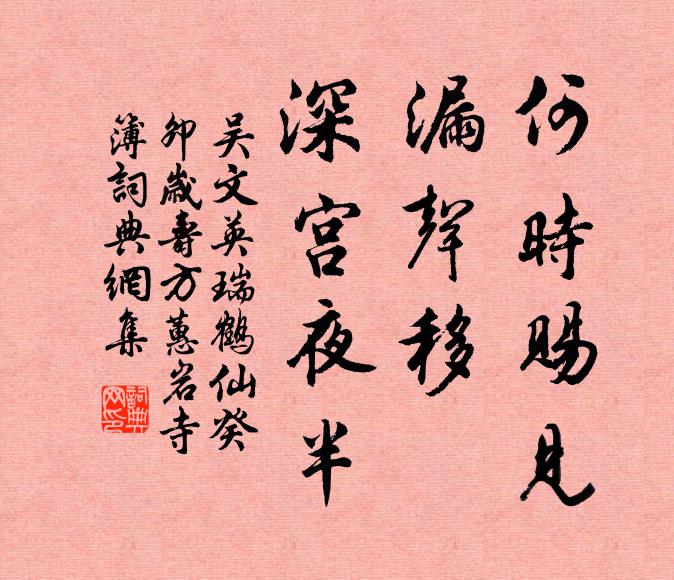 何時賜見
漏聲移
深宮夜半
吳文英瑞鶴仙癸
卯歲壽方蕙岩寺
簿詞典網集
詞典網印